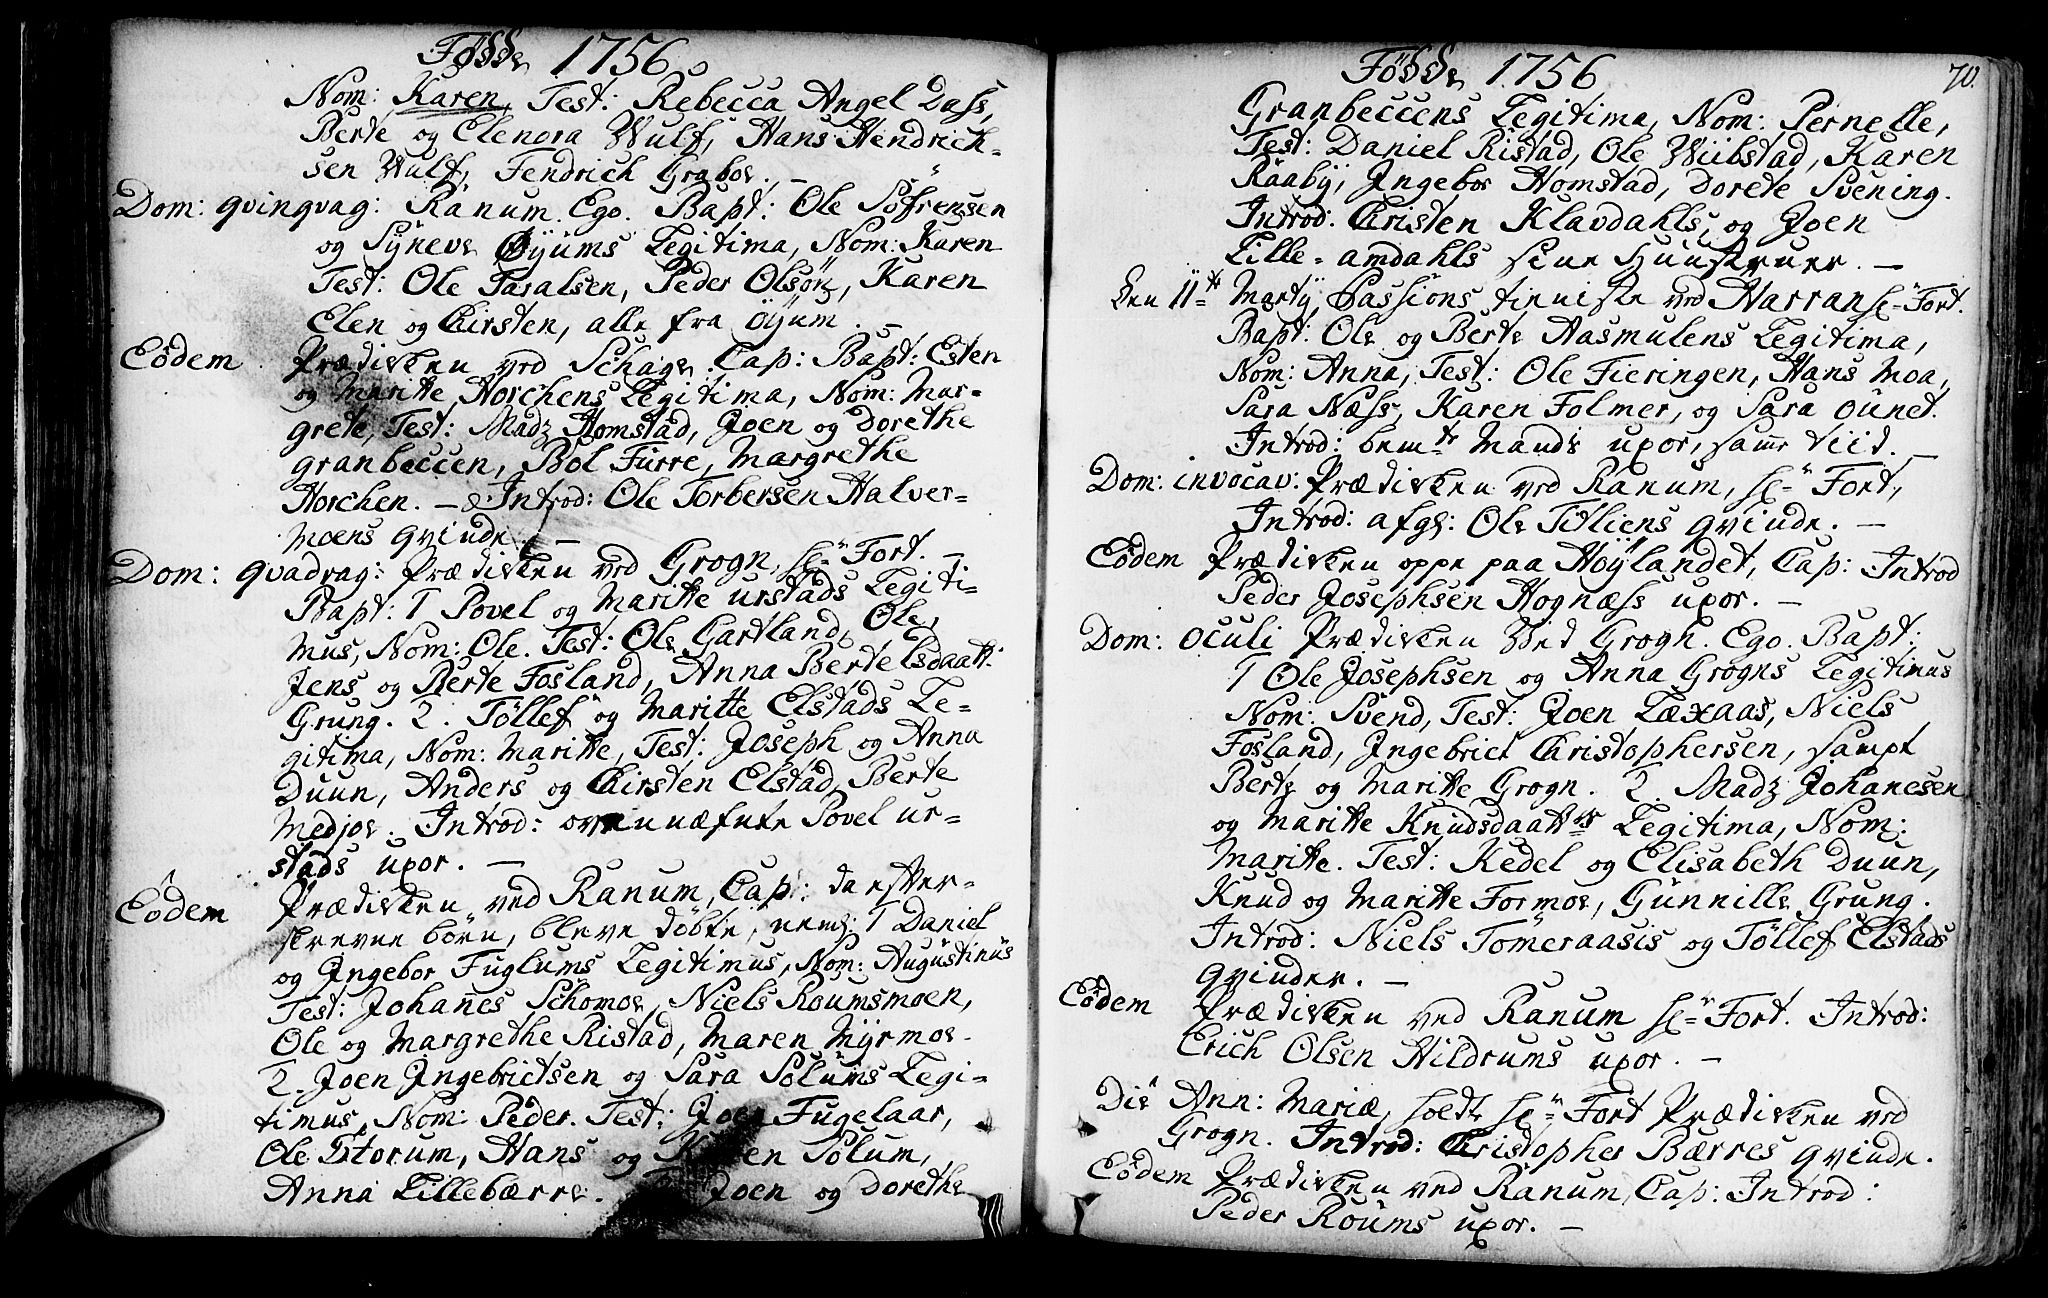 Födde 1756
Nom: Karen, Test: Rebecca Angel Dass,
Berte og Elenora Wulf, Hans Hendrich=
sen Wulf, Fendrich Graboe. —
Dom: qvinqvag: Ranum. Ego. Bapt: Ole Söfrensen
og Sÿneve Øÿums Legitima, Nom: Karen
Test: Ole Taralsen, Peder Olsön, Karen
Elen og Kirsten, alle fra Öÿum. —
Eödem Prædicken ved Schage. Cap: Bapt: Esten
og Maritte Horchens Legitima, Nom: Mar=
grete, Test: Madz Homstad, Joen og Dorethe
Granbeccen, Bol Furre, Margrethe
Horchen. — Introd: Ole Torbersen Halver=
moens qvinde. —
Dom: qvadrag: Prædicken ved Grogn, hr Fort. —
Bapt: 1 Povel og Maritte urstads Legiti=
mus, Nom: Ole. Test: Ole Gartland, Ole,
Jens og Berte Fosland, Anna Bertelsdaatt:
Grung. 2. Töllef og Maritte Elstads Le=
gitima, Nom: Maritte, Test: Joseph og Anna
Duun, Anders og Kirsten Elstad, Berte
Medjoe. Introd: ovennæfnte Povel ur=
stads uxor. —
Eodem Prædicken ved Ranum, Cap: da efter=
skrevne börn, bleve döbte, neml: 1 Daniel
og Ingebor Fuglums Legitimus, Nom: Augustinus
Test: Johanes Schomoe, Niels Roumsmoen,
Ole og Margrethe Ristad, Maren Mÿrmoe.
2. Joen Ingebrictsen og Sara Solums Legi=
timus, Nom: Peder. Test: Joen Fugelaar,
Ole Storum, Hans og Karen Solum,
Anna Lillebærre. Joen og Dorethe
Födde 1756
70.
Granbeccens Legitima, Nom: Pernelle,
Test: Daniel Ristad, Ole Wiibstad, Karen
Raaby, Ingebor Homstad, Dorete Svening.
Introd: Christen Klavdahls, og Joen
Lille=amdahls sine Huustruer. —
Den 11te Martÿ, Passions tieniste ved Harran hr Fort.
Bapt: Ole og Berte Aasmulens Legitima,
Nom: Anna, Test: Ole Fieringen, Hans Moa,
Sara Næss, Karen Folmer, og Sara ounet.
Introd: bemte Mands uxor, samme tiid. —
Dom: invocav: Prædicken ved Ranum, hr Fort,
Introd: afgl: Ole Töliens qvinde. —
Eödem Prædicken oppe paa Höÿlandet, Cap: Introd
Peder Josephsen Hognæss uxor. —
Dom: oculi Prædicken Ved Grogn. Ego. Bapt:
1 Ole Josephsen og Anna Grogns Legitimus
Nom: Svend, Test: Joen Laxaas, Niels
Fosland, Ingebrict Christophersen, sampt
Berte og Maritte Grogn. 2. Madz Johanesen
og Maritte Knudsdaatters Legitima, Nom:
Maritte. Test: Kedel og Elisabeth Duun,
Knud og Maritte Formoe, Gunnille Grung.
Introd: Niels Tömeraasis og Töllef Elstads
qvinder. —
Eodem Prædicken ved Ranum hr Fort. Introd:
Erich Olsen Hildrums uxor. —
Die Ann: Mariæ, holdt hr Fort Prædicken ved
Grogn. Introd: Christopher Bærres qvinde.
Eodem Prædicken ved Ranum, Cap: Introd:
Peder Roums uxor. —